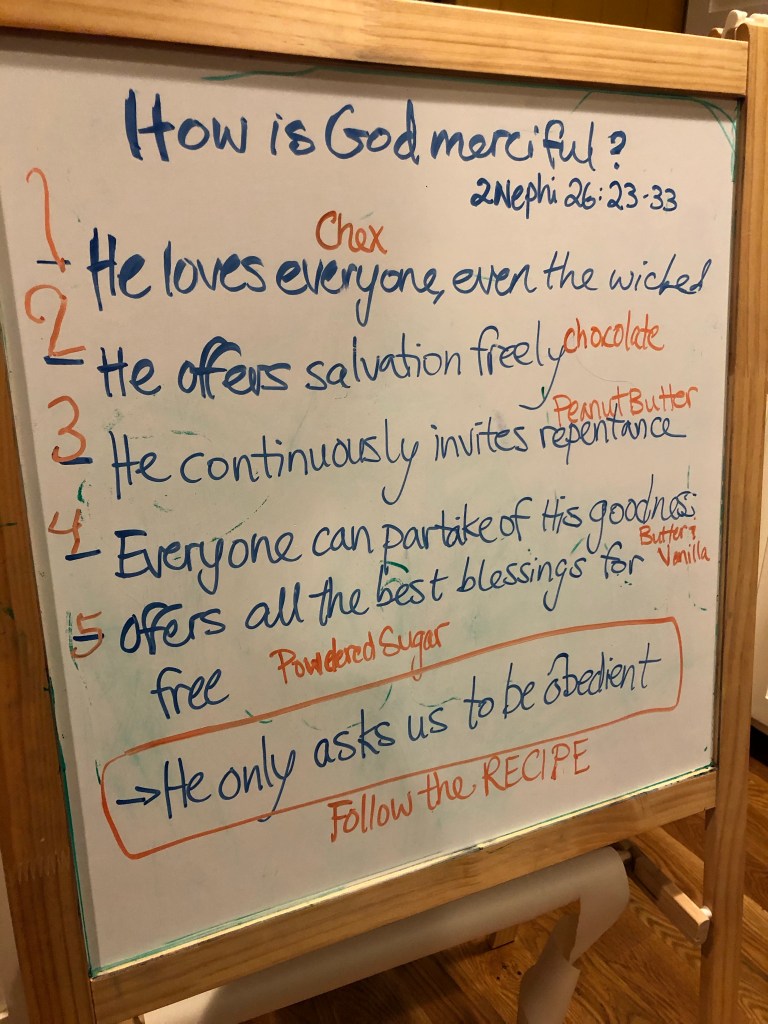 How is God merciful?
2 Nephi 26:23-33
1 Chex
- He loves everyone, even the wicked
2 - He offers salvation freely chocolate
3 Peanut Butter
- He continuously invites repentance
4 - Everyone can partake of His goodness
Butter & Vanilla
5 - offers all the best blessings for
free Powdered Sugar
→ He only asks us to be obedient
Follow the RECIPE